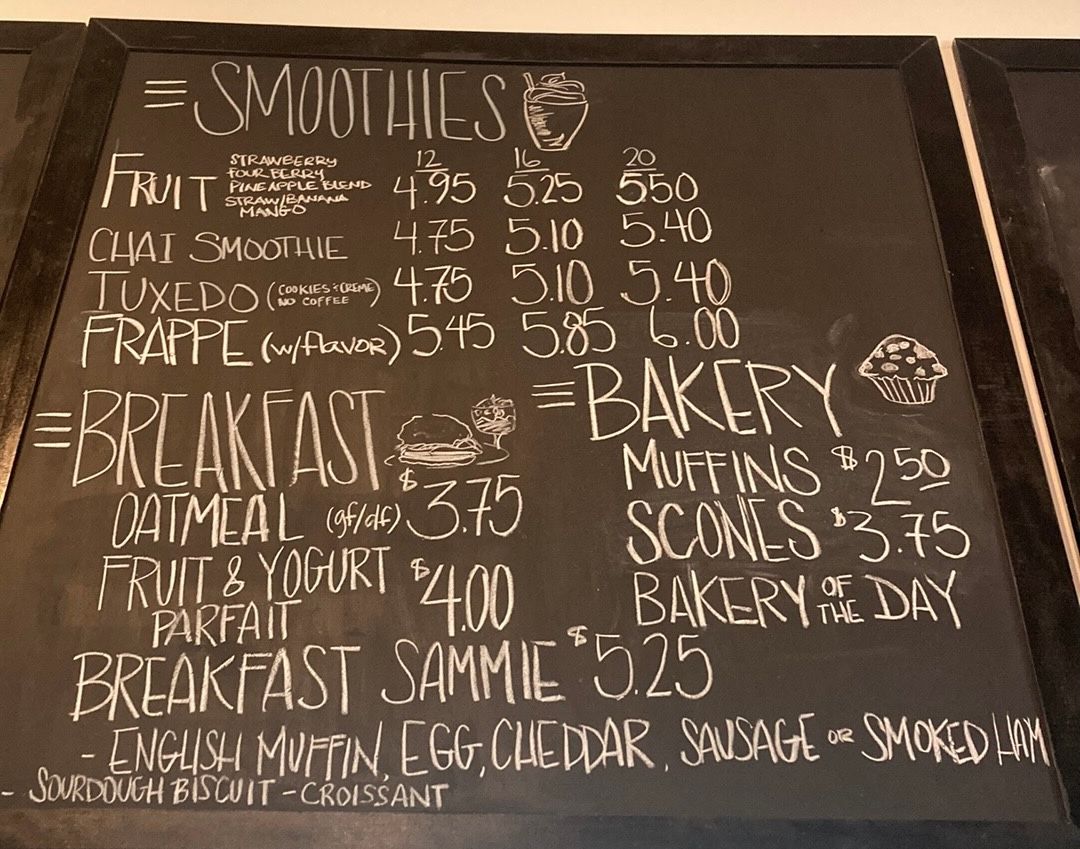 SMOOTHIES
12 16 20
FRUIT STRAWBERRY 4.95 5.25 5.50
FOUR BERRY
PINEAPPLE BLEND
STRAW/BANANA
MANGO
CHAI SMOOTHIE 4.75 5.10 5.40
TUXEDO (COOKIES & CREME NO COFFEE) 4.75 5.10 5.40
FRAPPE (w/flavor) 5.45 5.85 6.00
BREAKFAST
OATMEAL (gf/df) $3.75
FRUIT & YOGURT
PARFAIT $4.00
BREAKFAST SAMMIE $5.25
- ENGLISH MUFFIN, EGG, CHEDDAR, SAUSAGE OR SMOKED HAM
- SOURDOUGH BISCUIT - CROISSANT
BAKERY
MUFFINS $2.50
SCONES $3.75
BAKERY OF THE DAY